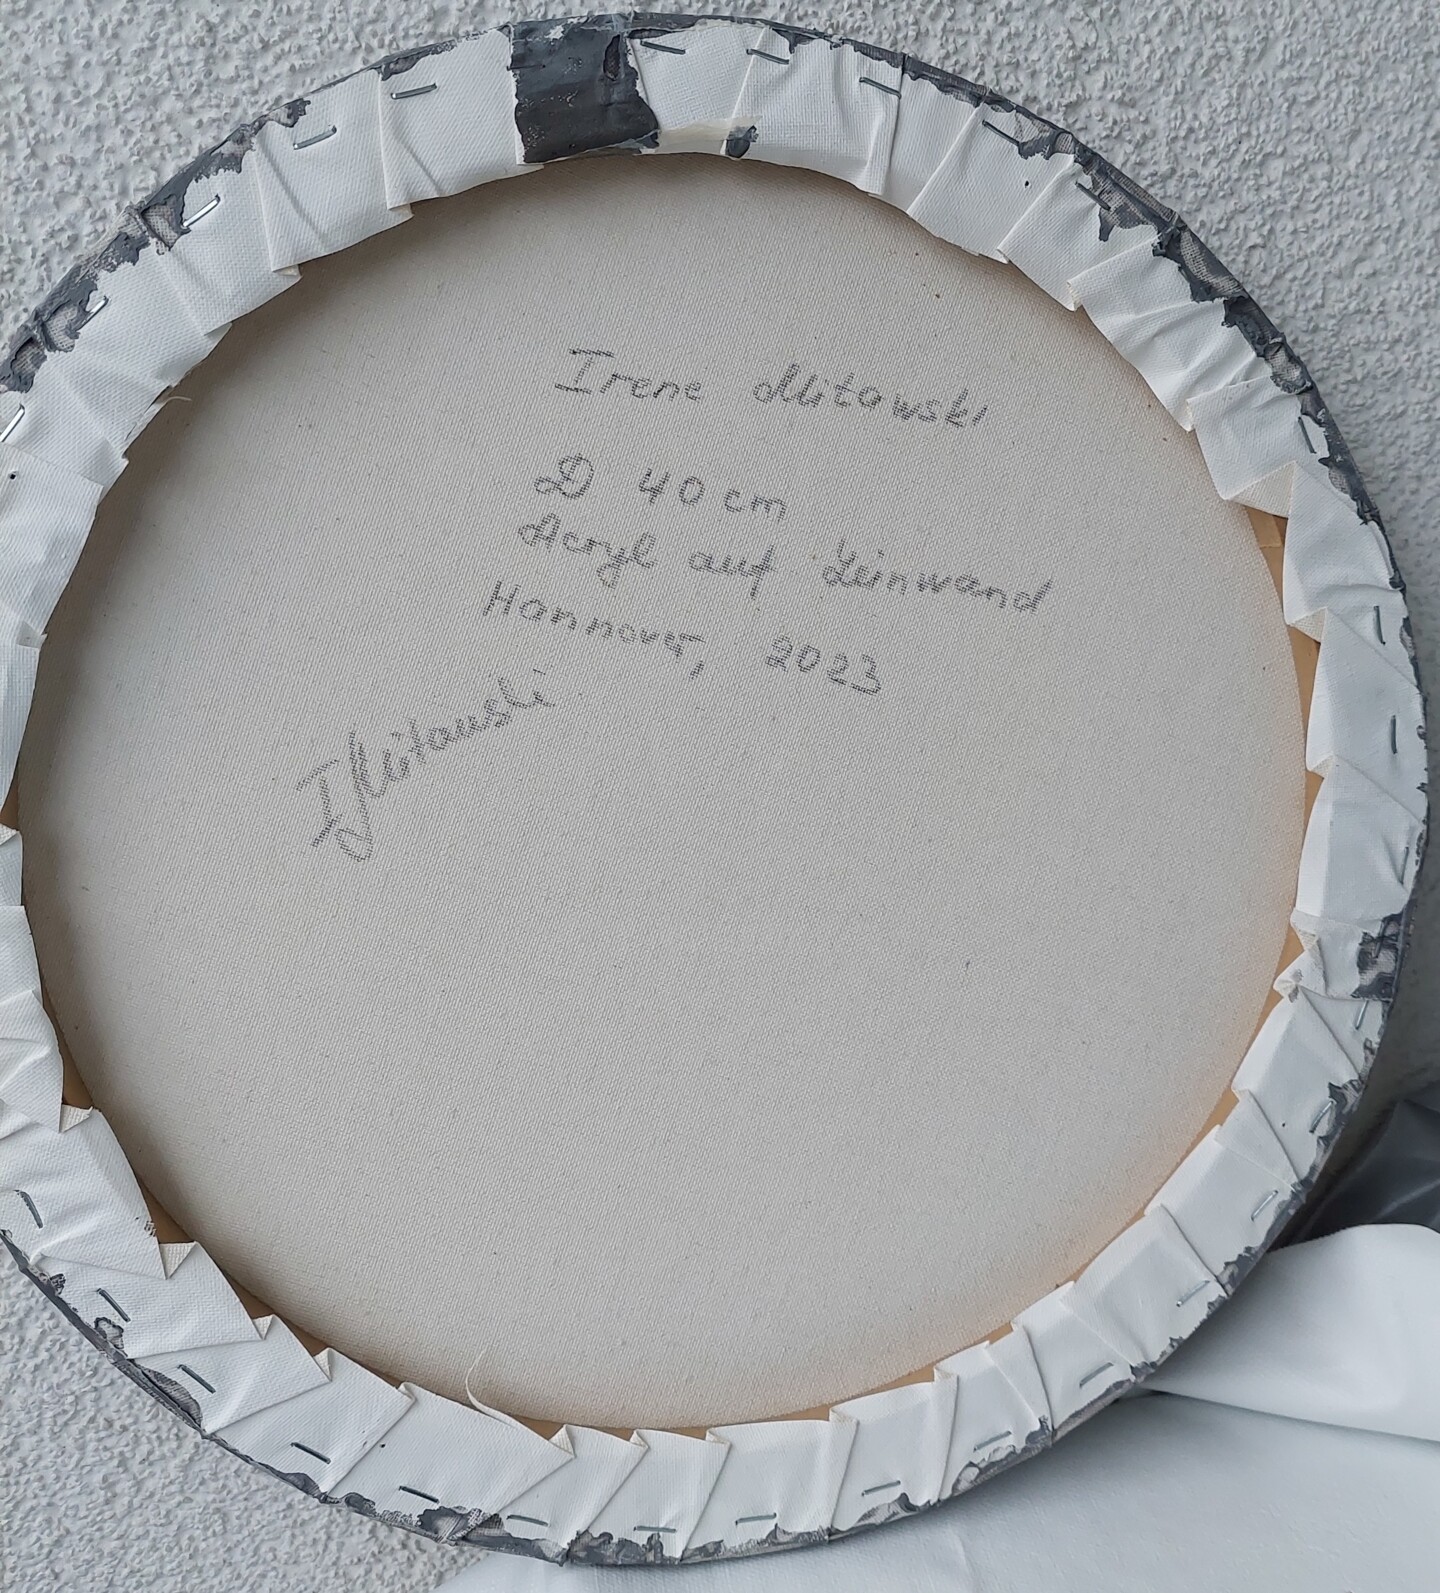 Irene Mitowski
D 40 cm
Acryl auf Leinwand
Hannover, 2023
IMitowski